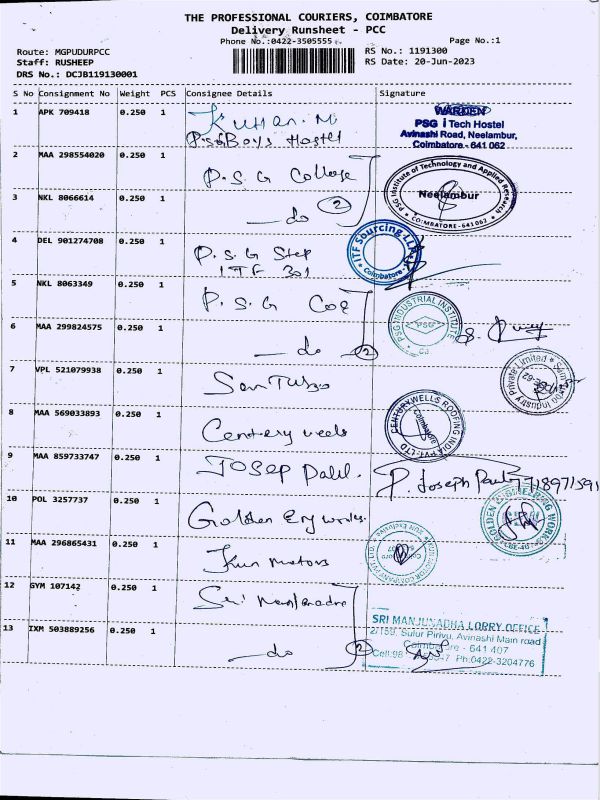 THE PROFESSIONAL COURIERS, COIMBATORE
Delivery Runsheet - PCC
Phone No.:0422-3505555
Page No.:1
Route: MGPUDURPCC
RS No.: 1191300
Staff: RUSHEEP
RS Date: 20-Jun-2023
DRS No.: DCJB119130001
S No Consignment No Weight PCS Consignee Details Signature
1 APK 709418 0.250 1
P.S.G Boys Hostel
WARDEN
PSG i Tech Hostel
Avinashi Road, Neelambur,
Coimbatore - 641 062
2 MAA 298554020 0.250 1 P.S.G College
PSG Institute of Technology and Applied Research
Neelambur
COIMBATORE - 641 062
3 NKL 8066614 0.250 1 do 2
4 DEL 901274708 0.250 1 P.S.G Step
ITF 301
ITF Sourcing LLP
Coimbatore
5 NKL 8063349 0.250 1 P.S.G
PSG INDUSTRIAL INSTITUTE
PSG
6 MAA 299824575 0.250 1 do 2
7 VPL 521079938 0.250 1
Industry Private Limited
8 MAA 569033893 0.250 1 Centery wells
CENTURYWELLS ROOFING INDIA PVT. LTD
Coimbatore
9 MAA 859733747 0.250 1 Josep
P. Joseph Paul 7718971591
10 POL 3257737 0.250 1 Golden
GOLDEN
11 MAA 296865431 0.250 1 Kun Motors
KUN MOTOR COMPANY PVT LTD
12 GYM 107142 0.250 1 Sri
13 IXM 503889256 0.250 1 do 2
SRI MANJUNADHA LORRY OFFICE
2/159, Sulur Pirivu, Avinashi Main road
Coimbatore - 641 407
Cell:98 Ph:0422-3204776